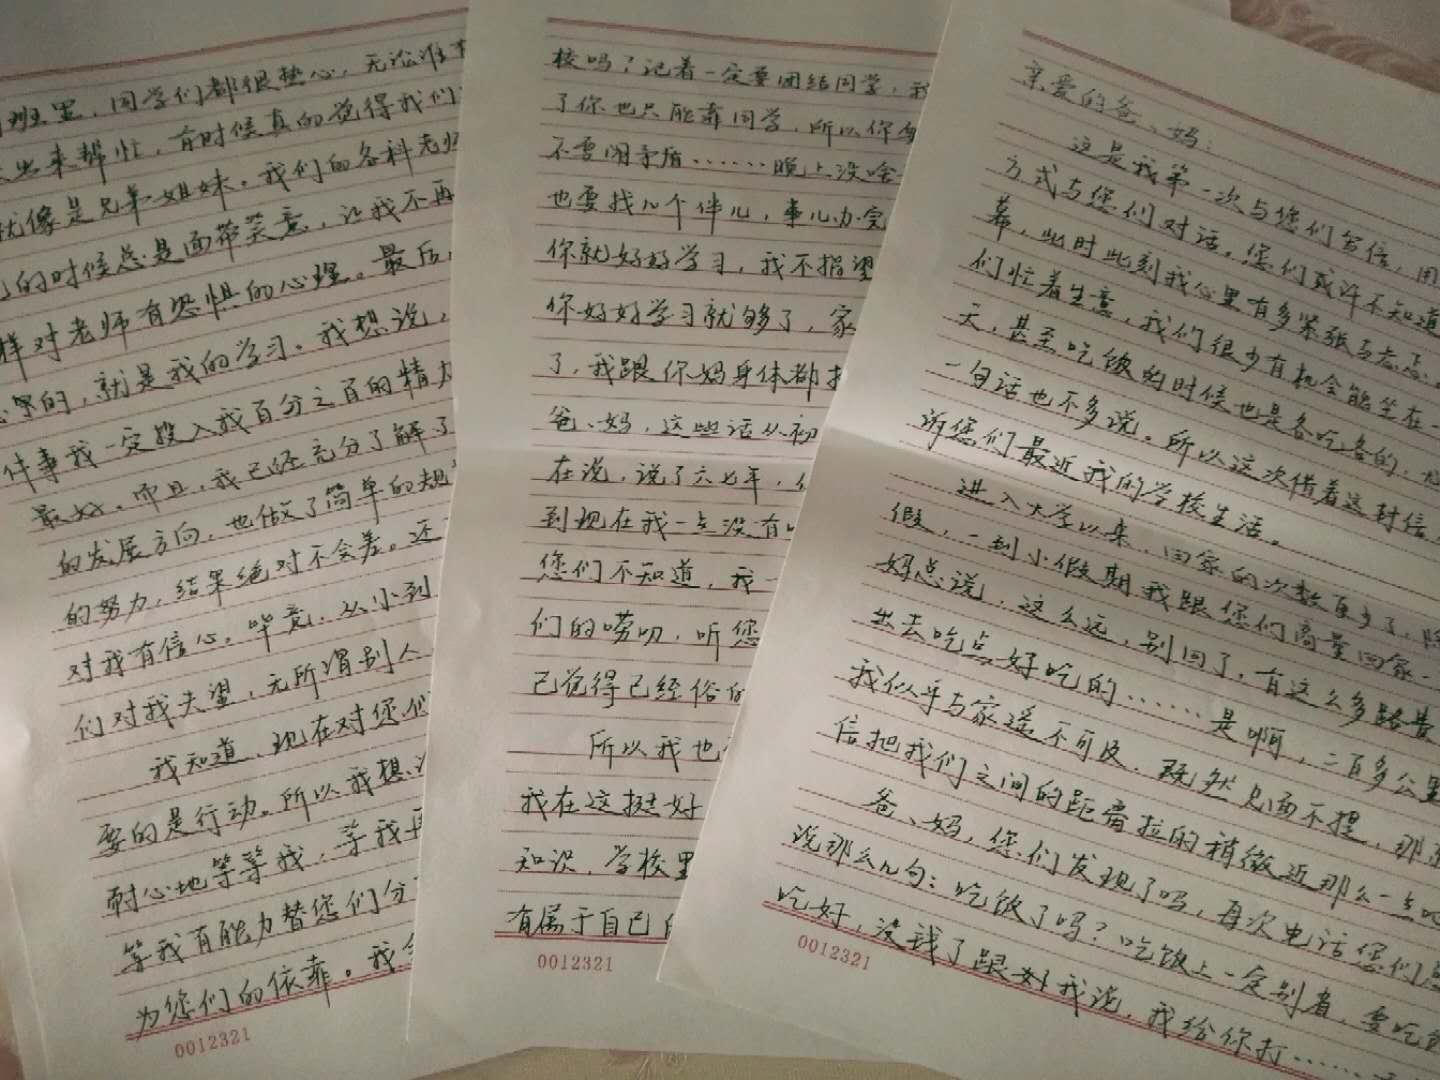 亲爱的爸、妈:
这是我第一次与您们写信,用
方式与您们对话。您们或许不知道
幕,此时此刻我心里有多紧张与忐忑。
们忙着生意,我们很少有机会能坐在一
天,甚至吃饭的时候也是各吃各的,
一句话也不多说。所以这次借着这封信
诉您们最近我的学校生活。
进入大学以来,回家的次数
假,一到小假期我跟您们商量回家
妈总说,这么远,别回了,有这么多路费
出去吃点好吃的……是啊,二百多公里
我似乎与家遥不可及,既然见面不提,那
信把我们之间的距离拉的稍微近那么一点吧
爸、妈,您们发现了吗,每次电话您们
说那么几句:吃饭了吗?吃饭上一定别省,要吃
吃好,没钱了跟妈我说,我给你打……
0012321
校吗?记着一定要团结同学,
了你也只能靠同学,所以你
不要闹矛盾……晚上没啥
也要找几个伴儿,事儿办完
你就好好学习,我不指望
你好好学习就够了,家
了,我跟你妈身体都
爸、妈,这些话从初
在说,说了六七年,
到现在我一点没有
您们不知道,我一
们的唠叨,听您
己觉得已经俗的
所以我也
我在这挺好
知识,学校里
有属于自己的
0012321
班里,同学们都很热心,无论谁
出来帮忙,有时候真的觉得我们
就像是兄弟姐妹。我们的各科老师
的时候总是面带笑意,让我不再
样对老师有恐惧的心理。最后,
的,就是我的学习。我想说,
件事我一定投入我百分之百的精力
最好。而且,我已经充分了解了
的发展方向,也做了简单的规
的努力,结果绝对不会差。还
对我有信心。毕竟,从小到
们对我失望,无所谓别人
我知道,现在对您们
要的是行动。所以我想
耐心地等等我,等我再
等我有能力替您们分
为您们的依靠。我会
0012321